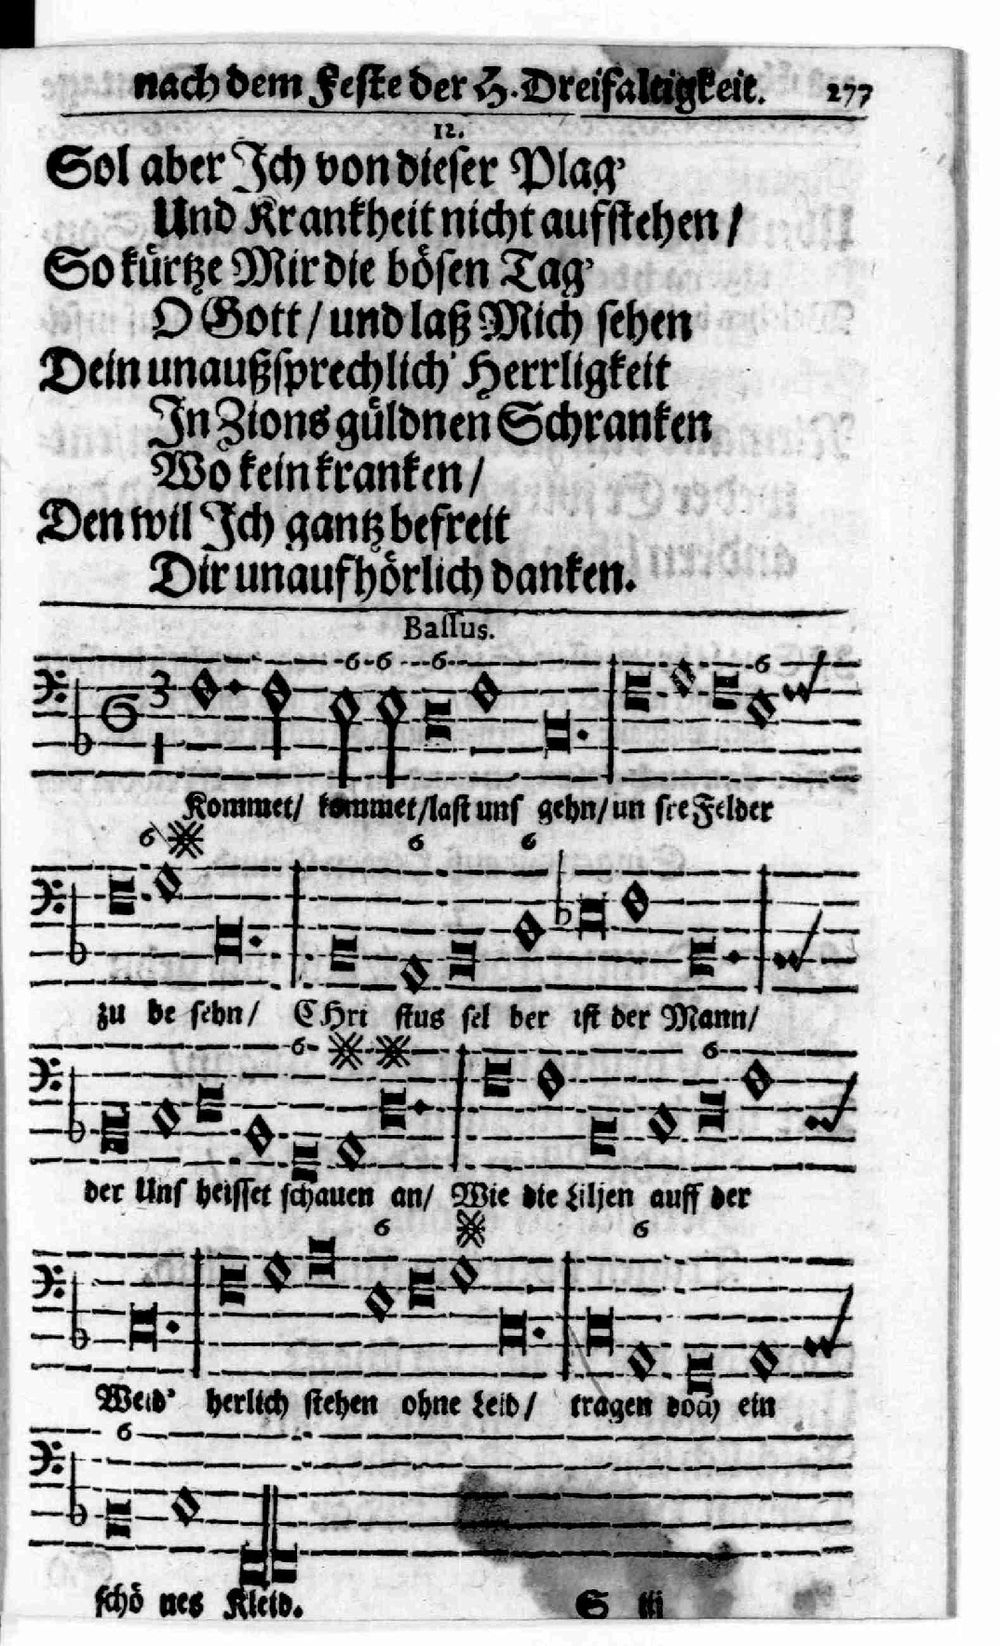 nach dem Feste der H. Dreifaltigkeit. 277
12.
Sol aber Jch von dieser Plag'
Und Krankheit nicht aufstehen /
So kürtze Mir die bösen Tag'
O Gott / und laß Mich sehen
Dein unaußsprechlich' Herrligkeit
Jn Zions güldnen Schranken
Wo kein kranken /
Den wil Jch gantz befreit
Dir unaufhörlich danken.
Bassus.
6 6 6 6
3
1
Kommet/ kommet/last uns gehn/ un sre Felder
6 6 6
zu be sehn/ CHri stus sel ber ist der Mann/
6 6
der Uns heisset schauen an/ Wie die Liljen auff der
6 6
Weid' herlich stehen ohne Leid/ tragen doch ein
6
schö nes Kleid. S iij